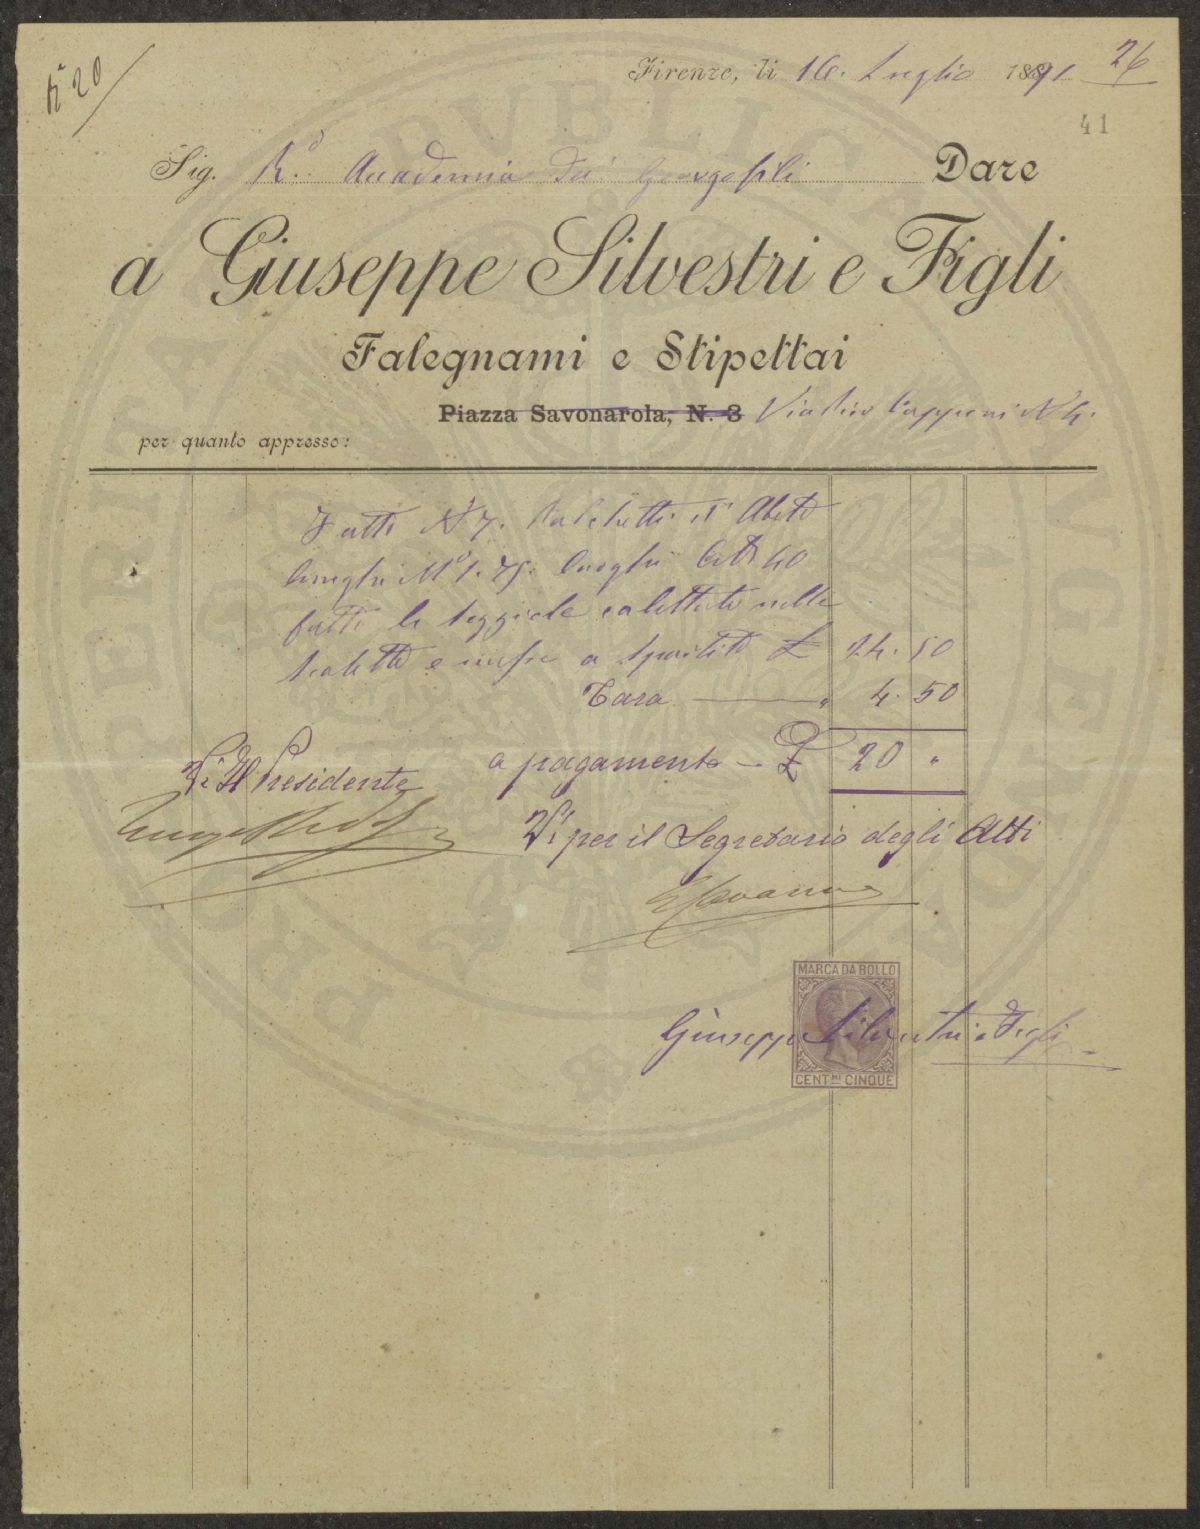 N° 20
Firenze, li 16. Luglio 1891
26
41
Sig. R.a Accademia dei Georgofili Dare
a Giuseppe Silvestri e Figli
Falegnami e Stipettai
Piazza Savonarola, N. 3 Via Pier Capponi N 4.
per quanto appresso:
Fatti N° 7. Palchetti d' Abeto
lunghi M° 1. 75. larghi Cti 40
fatti le seggiole calettate nelle
e messe a £ 24. 50
Tara " 4. 50
a pagamento - £ 20 "
Vi Il Presidente
Vi per il Segretario degli Atti
MARCA DA BOLLO
Giuseppe Silvestri e Figli
CENT.MI CINQUE
PUBLICA